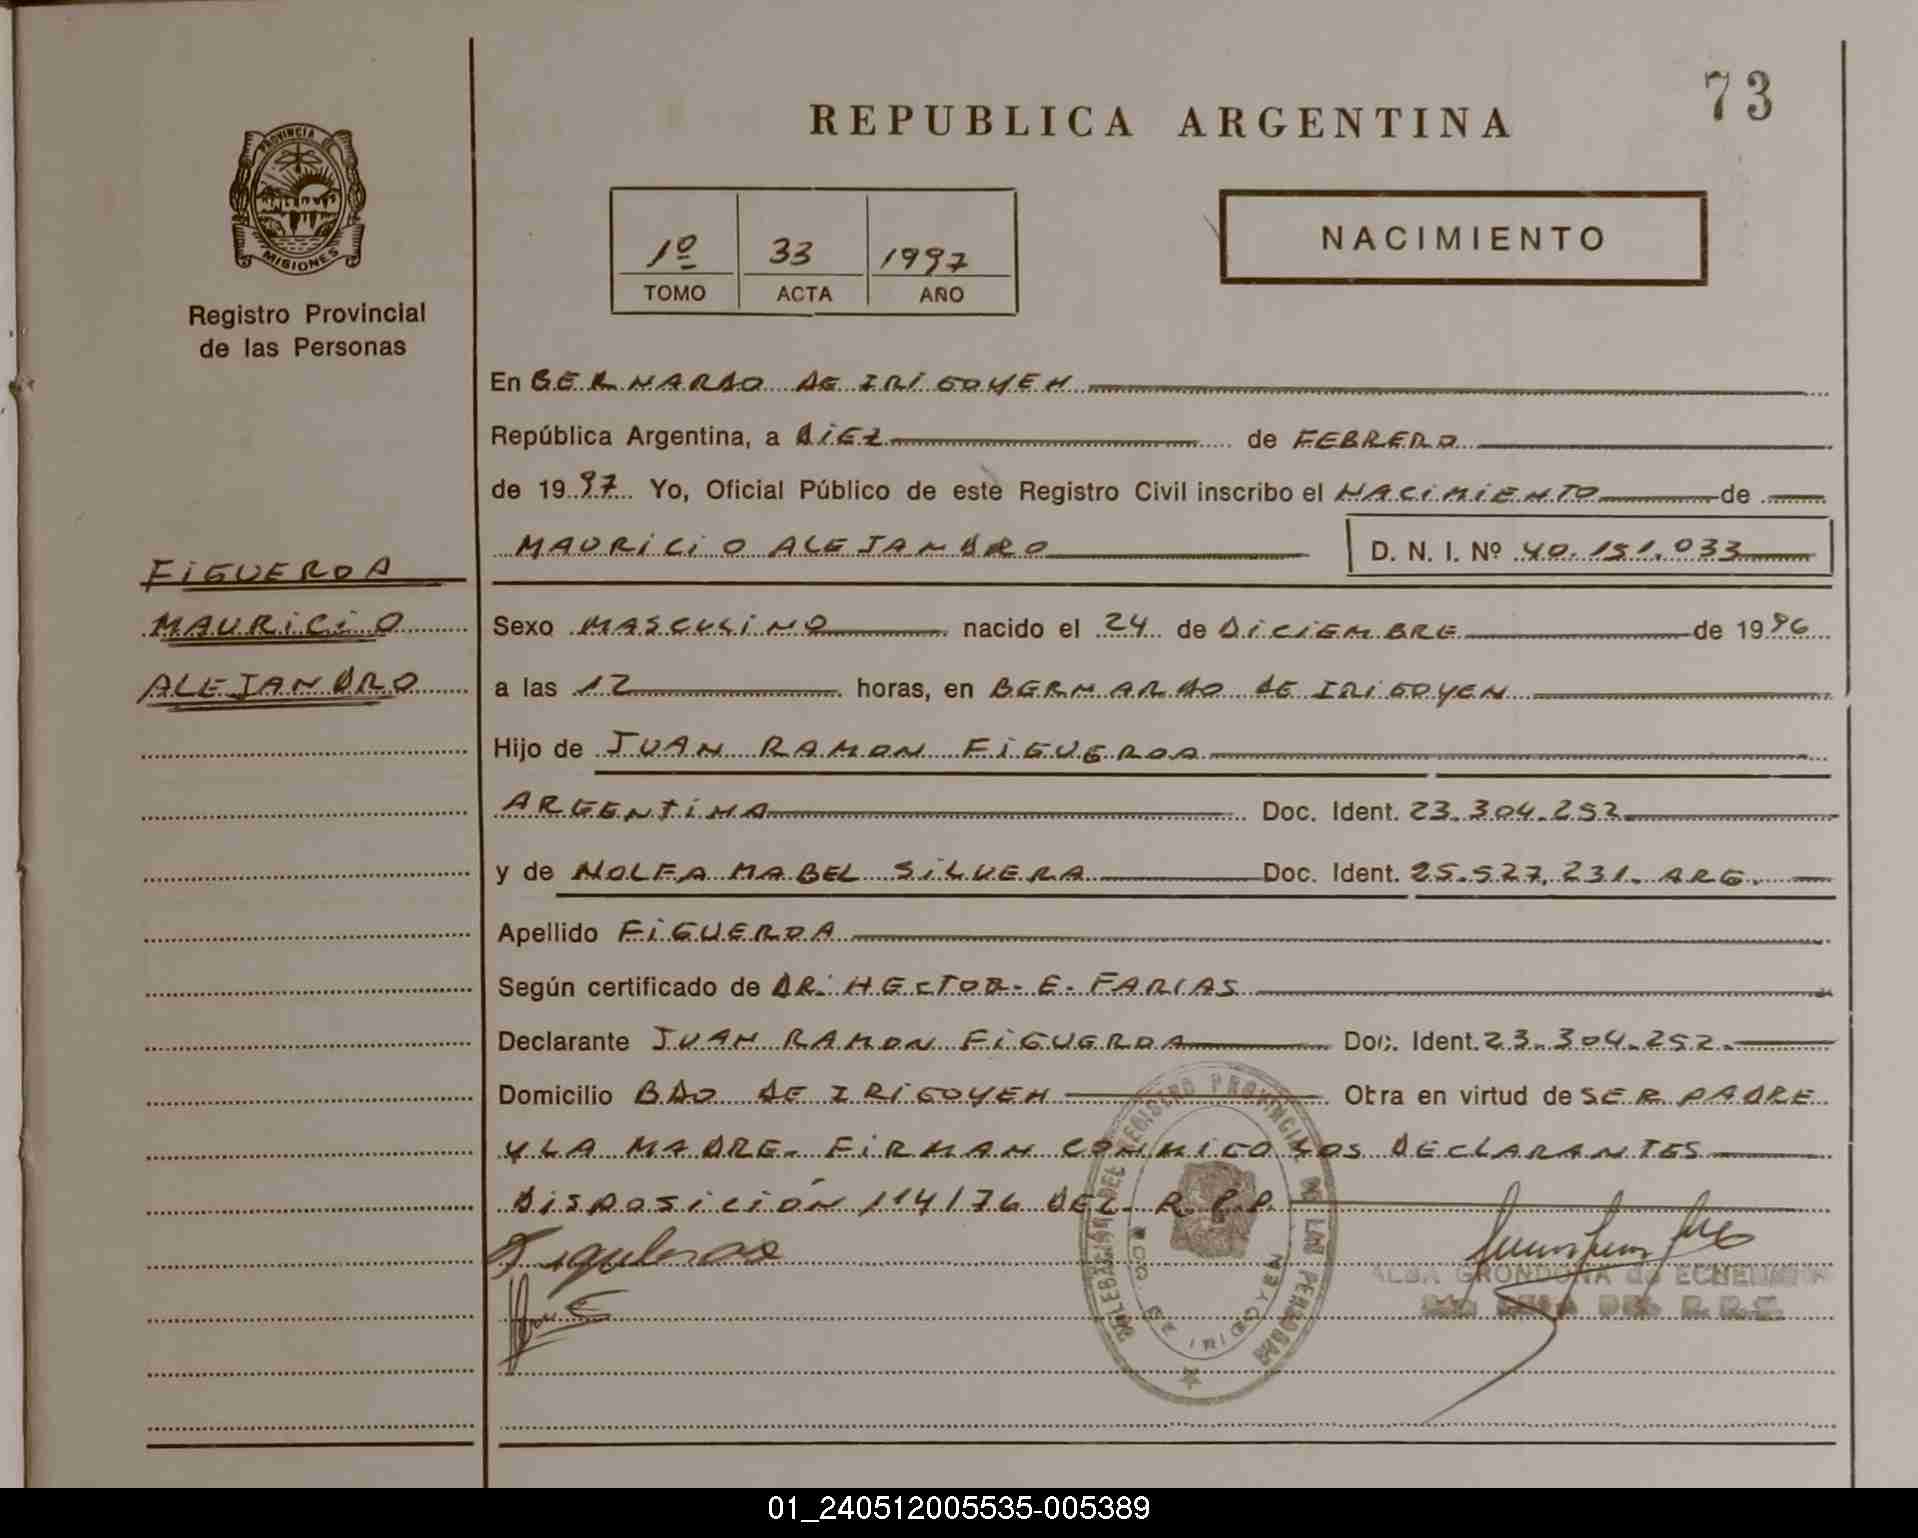 73
REPUBLICA ARGENTINA
PROVINCIA DE
MISIONES
Registro Provincial
de las Personas
1º 33 1997
TOMO ACTA AÑO
NACIMIENTO
En BERNARDO DE IRIGOYEN
República Argentina, a DIEZ de FEBRERO
de 1997 Yo, Oficial Público de este Registro Civil inscribo el NACIMIENTO de
MAURICIO ALEJANDRO D. N. I. Nº 40.151.033
FIGUEROA
MAURICIO
ALEJANDRO
Sexo MASCULINO nacido el 24 de DICIEMBRE de 1996
a las 12 horas, en BERNARDO DE IRIGOYEN
Hijo de JUAN RAMON FIGUEROA
ARGENTINA Doc. Ident. 23.304.252
y de NOLFA MABEL SILVERA Doc. Ident. 25.527.231. ARG.
Apellido FIGUEROA
Según certificado de DR. HECTOR E. FARIAS
Declarante JUAN RAMON FIGUEROA Doc. Ident. 23.304.252.
Domicilio BDO DE IRIGOYEN Obra en virtud de SER PADRE
Y LA MADRE. FIRMAN CONMIGO LOS DECLARANTES
DISPOSICIÓN 114/76 DEL R.P.P.
DELEGACIÓN DEL REGISTRO PROVINCIAL DE LAS PERSONAS
BDO. DE IRIGOYEN
ALBA GRONDONA de
01_240512005535-005389